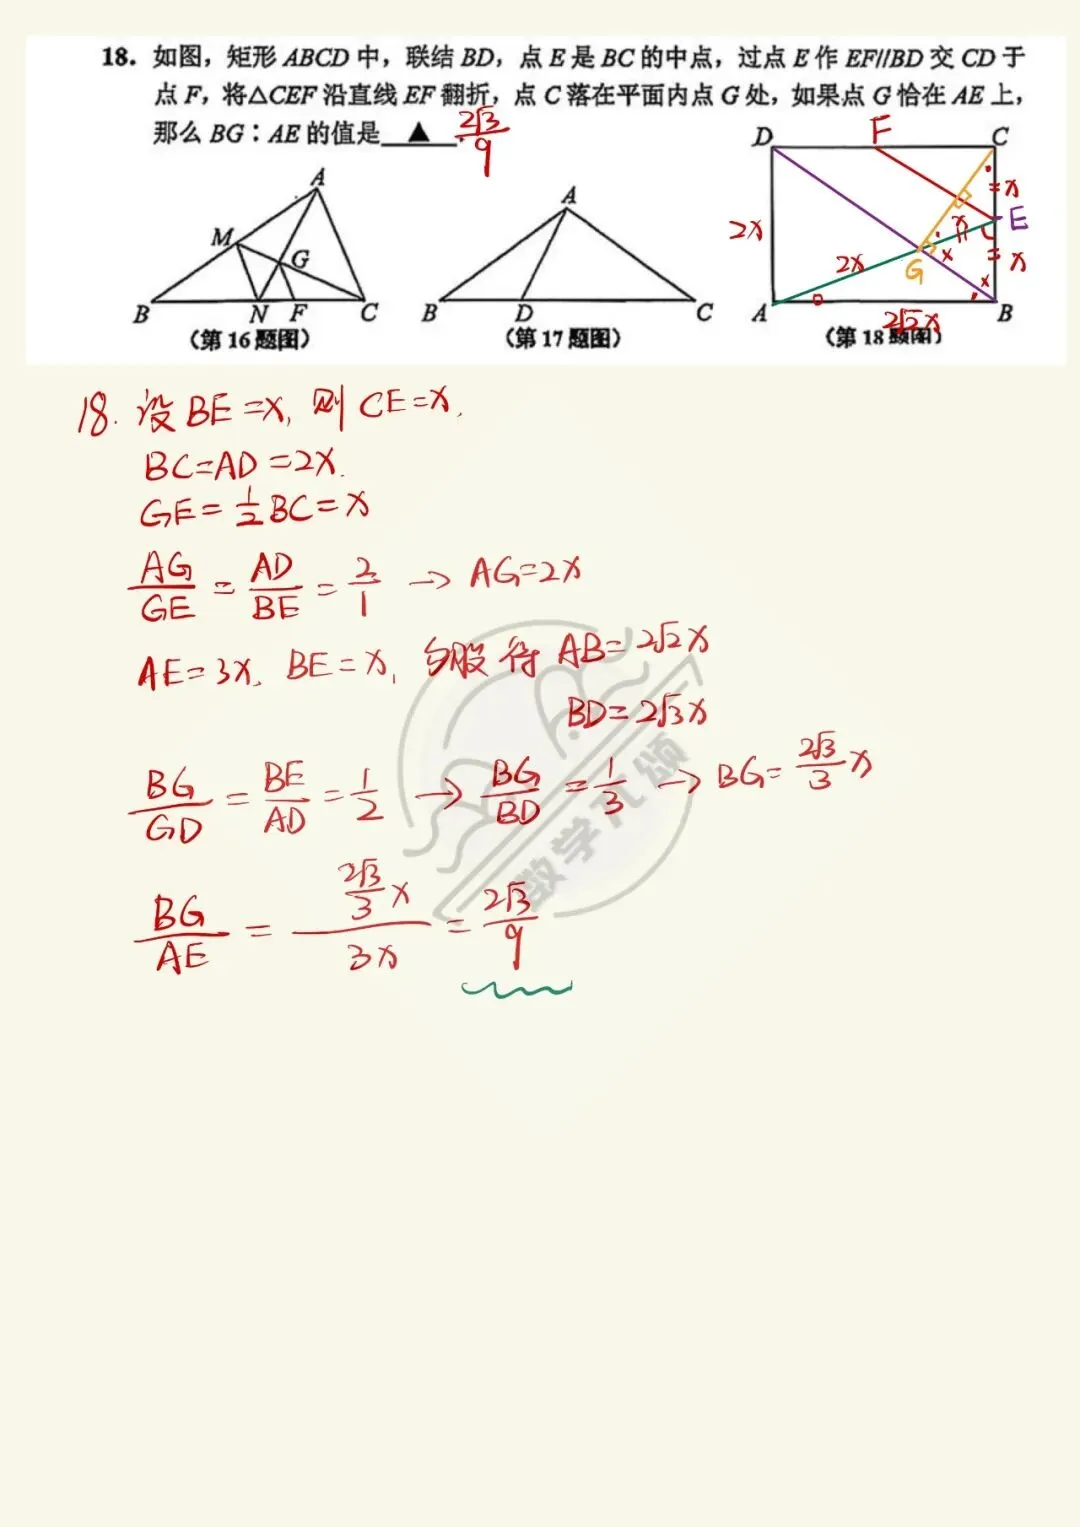 18. 如图，矩形 ABCD 中，联结 BD，点 E 是 BC 的中点，过点 E 作 EF//BD 交 CD 于
点 F，将△CEF 沿直线 EF 翻折，点 C 落在平面内点 G 处，如果点 G 恰在 AE 上，
那么 BG∶AE 的值是 ▲ . 2√3/9
A
M
G
B N F C
(第 16 题图)
A
B D C
(第 17 题图)
D F C
x
2x x E
2x G x x x
A B
2√2x
(第 18 题图)
18. 设 BE=x, 则 CE=x,
BC=AD=2x.
GE=1/2 BC=x
AG/GE = AD/BE = 2/1 → AG=2x
AE=3x, BE=x, 勾股得 AB=2√2x
BD=2√3x
BG/GD = BE/AD = 1/2 → BG/BD = 1/3 → BG= 2√3/3 x
BG/AE = (2√3/3 x)/3x = 2√3/9
数学兀颂